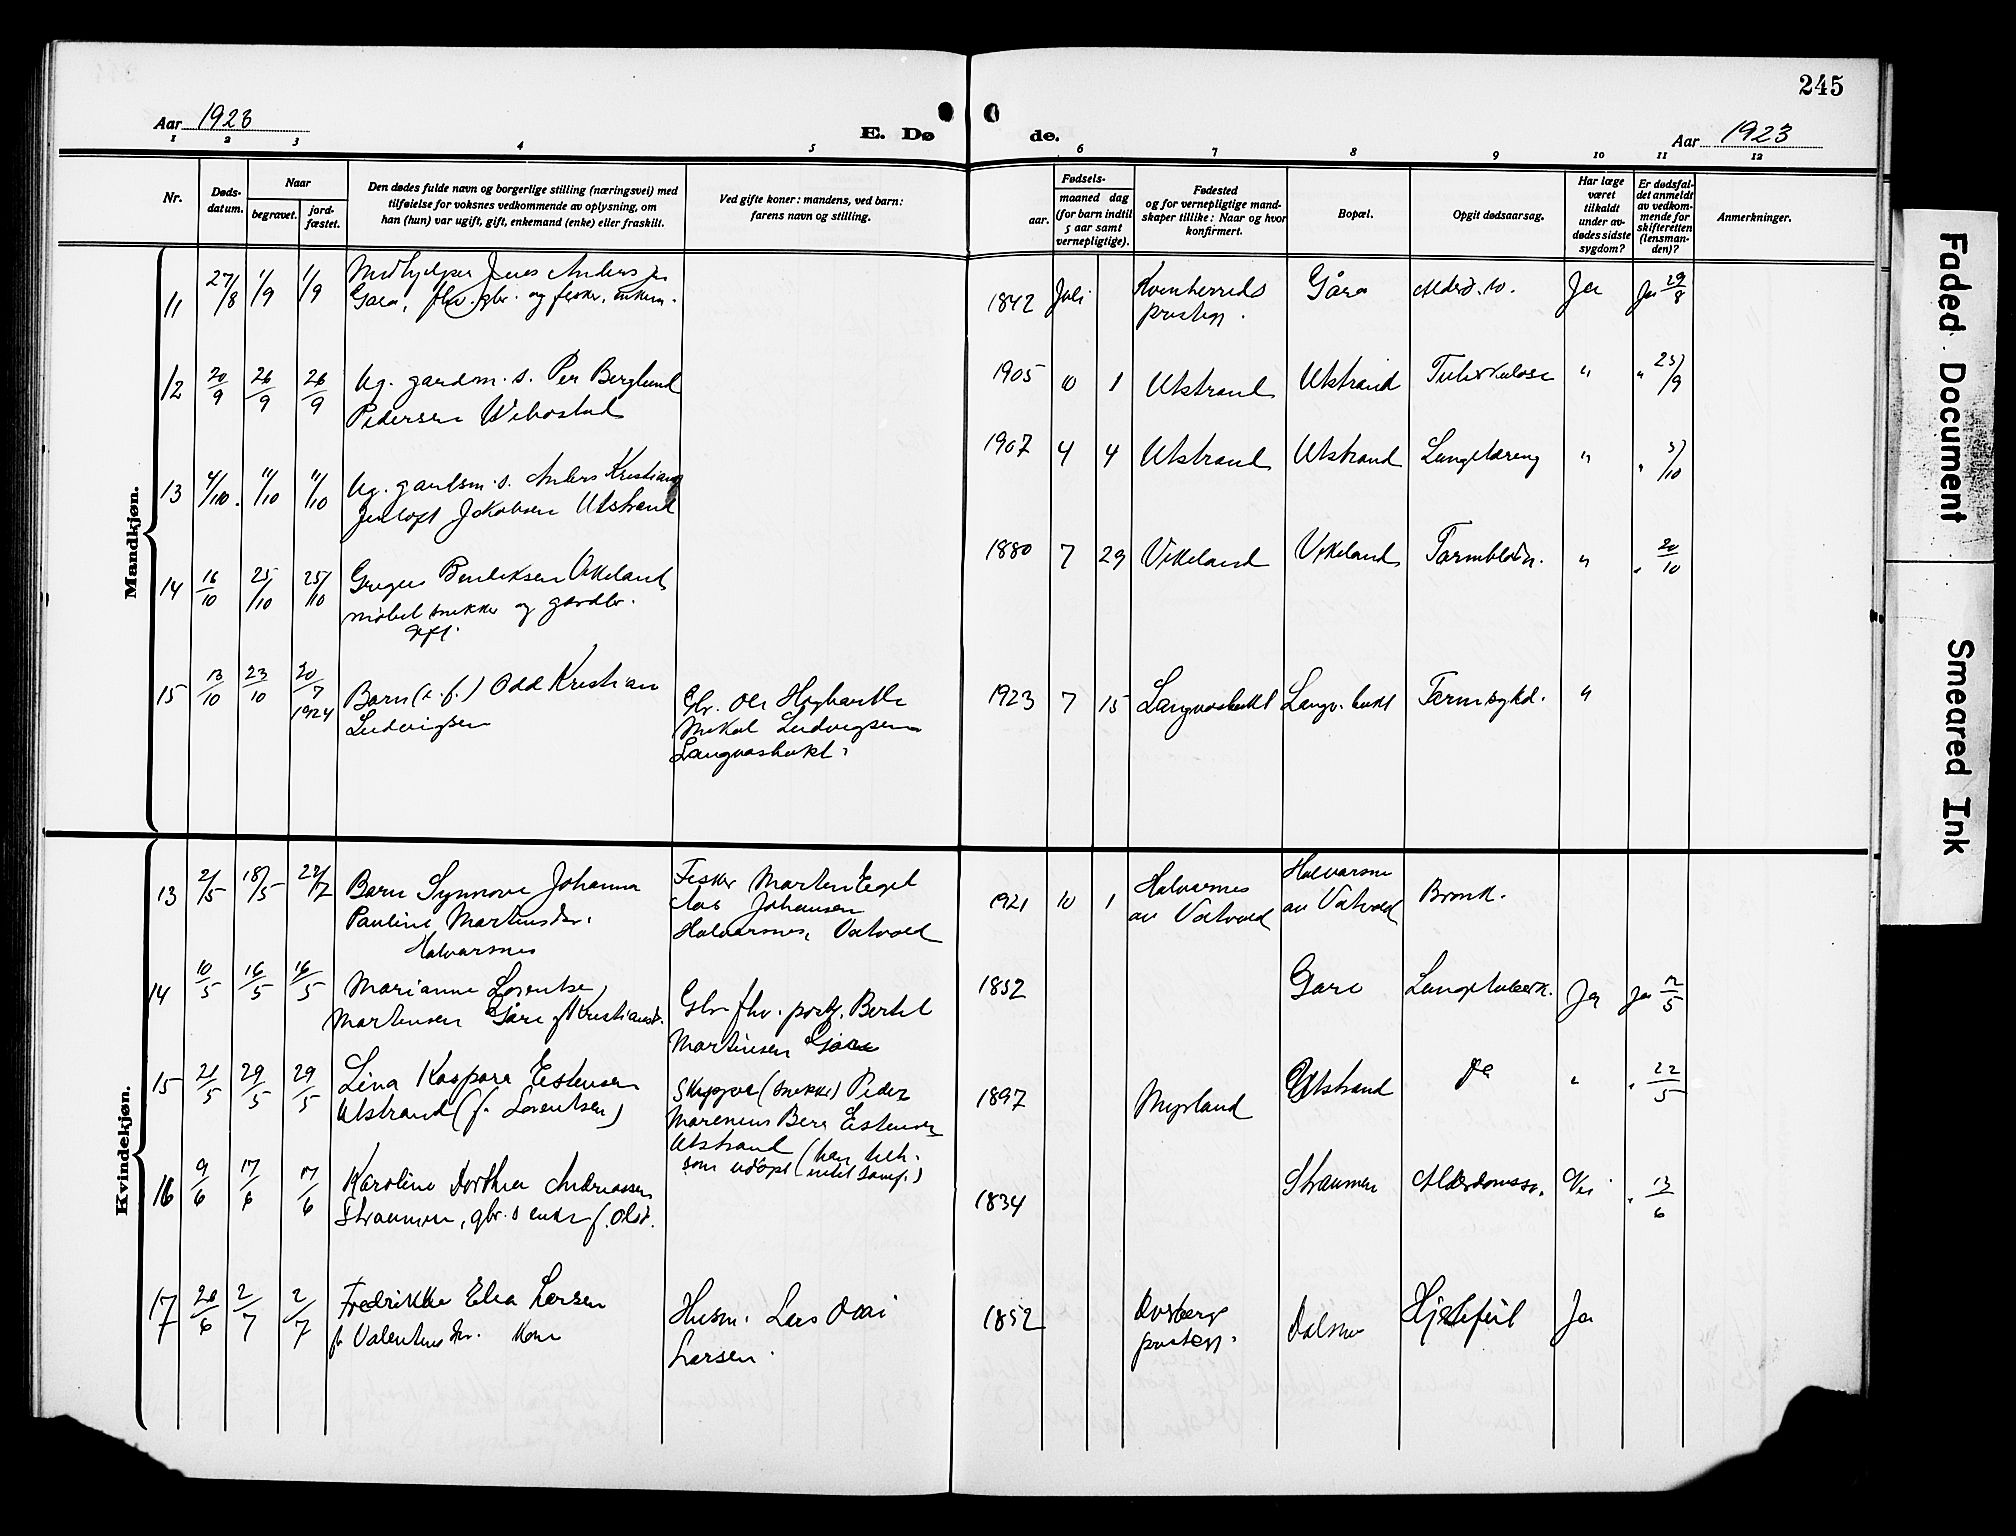 245
Aar 1923
E. Dø
de.
Aar 1923
1 2 3 4 5 6 7 8 9 10 11 12
Nr.
Døds-
datum.
Naar
begravet.
jord-
fæstet.
Den dødes fulde navn og borgerlige stilling (næringsvei) med
tilføielse for voksnes vedkommende av oplysning, om
han (hun) var ugift, gift, enkemand (enke) eller fraskilt.
Ved gifte koner: mandens, ved barn:
farens navn og stilling.
Fødsels-
aar.
maaned dag
(for barn indtil
5 aar samt
vernepligtige).
Fødested
og for vernepligtige mand-
skaper tillike: Naar og hvor
konfirmert.
Bopæl.
Opgit dødsaarsag.
Har læge
været
tilkaldt
under av-
dødes sidste
sygdom?
Er dødsfal-
det anmeldt
av vedkom-
mende for
skifteretten
(lensman-
den)?
Anmerkninger.
Mandkjøn.
11 27/8 1/9 1/9 Medhjelper Jens Anders
Gara, fhv. gbr. og fisker, enkem. 1842 Juli Kvenherreds
prestegj. Gåra Alderd. Ja Ja 29/8
12 20/9 26/9 26/9 Ug. gardm. s. Per Berglund
Pedersen Wibostad 1905 10 1 Utstrand Utstrand Tuberkulose " " 25/9
13 4/10. 11/10 11/10 Ug. gardsm. s. Anders Kristian
Jentoft Jakobsen Utstrand 1907 4 4 Utstrand Utstrand " " 5/10
14 16/10 25/10 25/10 Greger Benediksen Vikeland
møbelsnekker og gardbr.
gift. 1880 7 29 Vikeland Vikeland Tarmblødn. " " 20/10
15 13/10 23/10 20/7 1924 Barn Odd Kristian
Ludvigsen Gbr. Ole
Mikal Ludvigsen
Langvasbukt. 1923 7 15 Langvasbukt Langv. bukt Tarmsykd. "
Kvindekjøn.
13 2/5 18/5 22/7 Barn Synnove Johanna
Pauline Martinsdtr.
Halvarsnes Fisker Morten Eegel
Johansen
Halvarsnes, Vatvold 1921 10 1 Halvarsnes
av Vatvold Halvarsne
av Vatvold Bronk.
14 10/5 16/5 16/5 Marianne Lorentse
Martensen Gåre f. Kristiansd. Gbr. fhv. Bertel
Martinsen Gåre 1852 Gare Ja Ja 12/5
15 21/5 29/5 29/5 Lina Kaspara Estensen
Utstrand (f. Lorentsen) Skipper (snekker) Peder
Marenius Berg Estensen
Utstrand 1897 Myrland Utstrand Do " " 22/5
16 9/6 17/6 17/6 Karoline Dorthea Andreassen
Straumen, gbr. s enke f. Olsd. 1834 Straumen Alderdomssv. Nei " 13/6
17 20/6 2/7 2/7 Fredrikke Elea Larsen
f. Valentinsdtr. Kone Husm. Lars Odai
Larsen. 1852 prestegj. Hjertefeil Ja
Faded Document
Smeared Ink